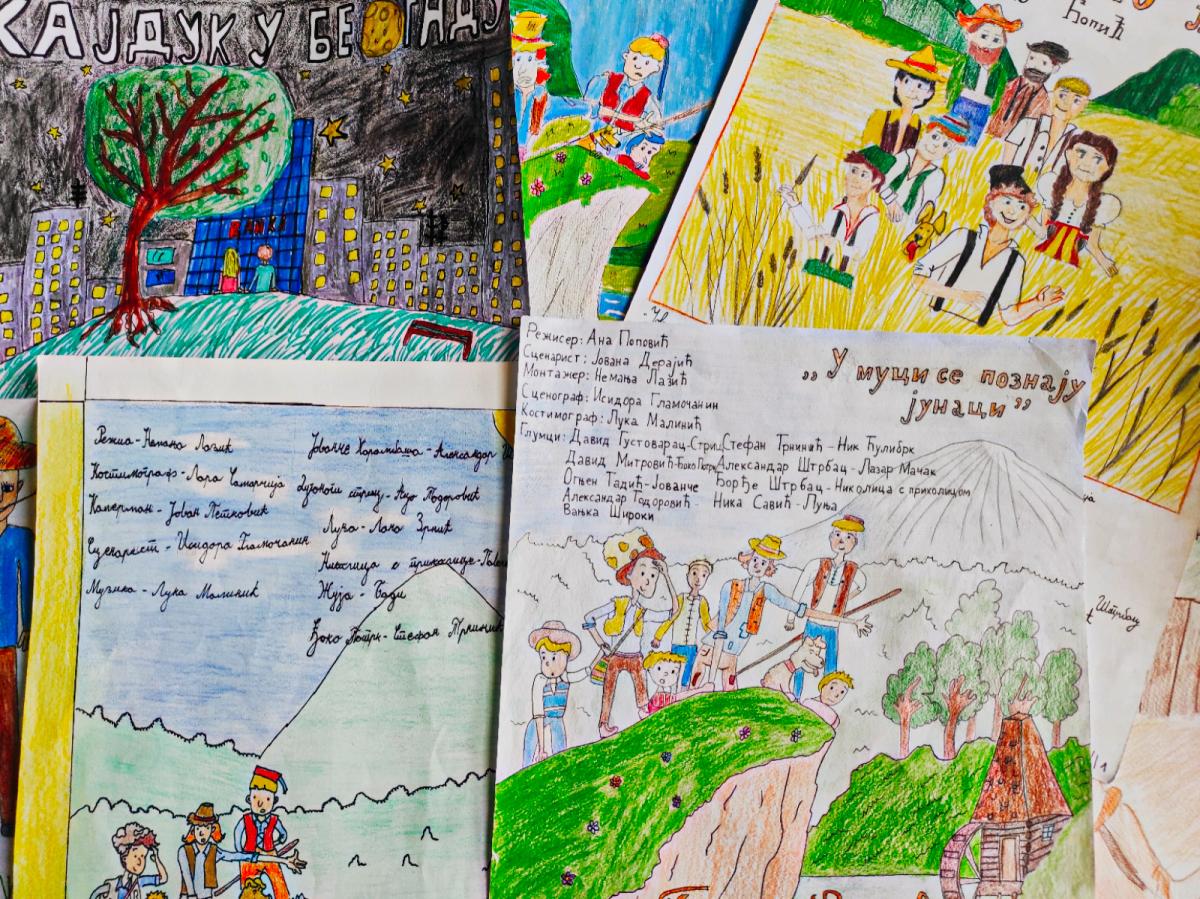 ХАЈДУК У БЕОГАДУ
БАНКА
Ћопић
Режисер: Ана Поповић
Сценарист: Јована Дерајић
Монтажер: Немања Лазић
Сценограф: Исидора Гламочанин
Костимограф: Лука Малинић
Глумци: Давид Густоварац-Стриц Стефан Трнинић - Ник Ћулибрк
Давид Митровић-Ђоко Потрк Александар Штрбац - Лазар Мачак
Огњен Тадић-Јованче Ђорђе Штрбац-Николица с приколицом
Александар Тодоровић - Ника Савић-Луња
Вања Широки
„У муци се познају
јунаци”
Режиа - Лазић
Костимограф - Лара
Камерман - Јован Петковић
Сценарист - Исидора Гламочанин
Музика - Лука Малинић
Јованче Харамбаша - Александар
Луња - Лана Зрнић
Николица с приколице -
Жуја - Беди
Ђоко Потрк - Стефан Трнинић
Штрбац